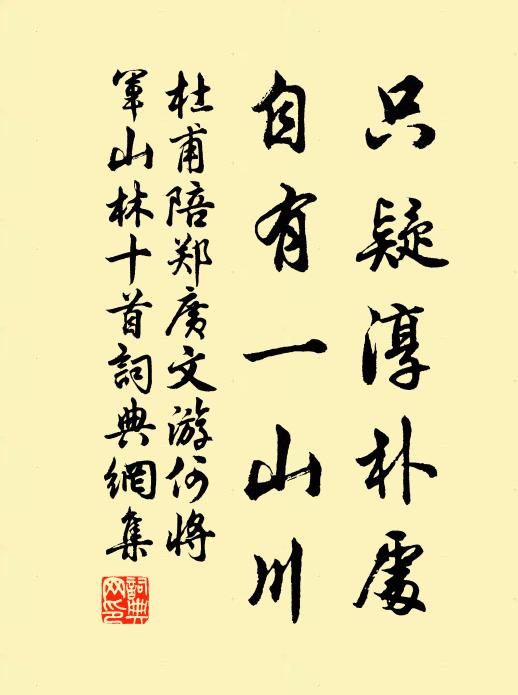 只疑淳朴處
自有一山川
杜甫陪郑廣文游何將
軍山林十首詞典網集
詞典
网印